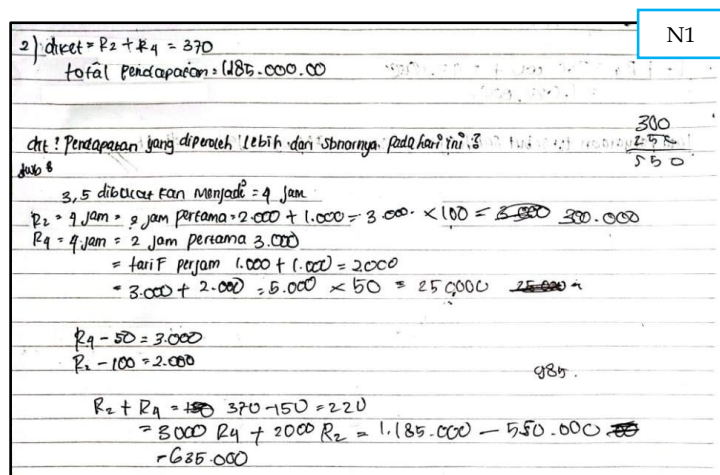 N1
2) diket = R2 + R4 = 370
total pendapatan = 1.185.000.00
300
250
550
dit : Pendapatan yang diperoleh lebih dari sbnarnya pada hari ini ?
Jwb :
3,5 dibulatkan menjadi = 4 jam
R2 = 4 jam = 2 jam pertama = 2.000 + 1.000 = 3.000 × 100 = 300.000
R4 = 4 jam = 2 jam pertama 3.000
= tarif perjam 1.000 + 1.000 = 2000
= 3.000 + 2.000 = 5.000 × 50 = 250.000
R4 - 50 = 3.000
R2 - 100 = 2.000
985.
R2 + R4 = 370 - 150 = 220
= 3000 R4 + 2000 R2 = 1.185.000 - 550.000
= 635.000